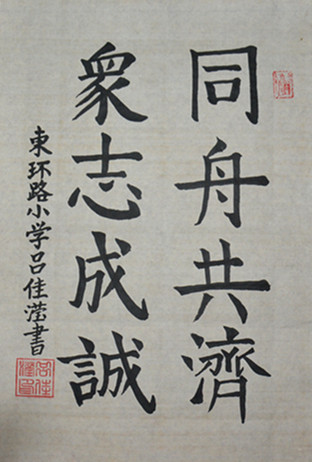 同舟共濟
衆志成誠
東环路小学吕佳瀅書